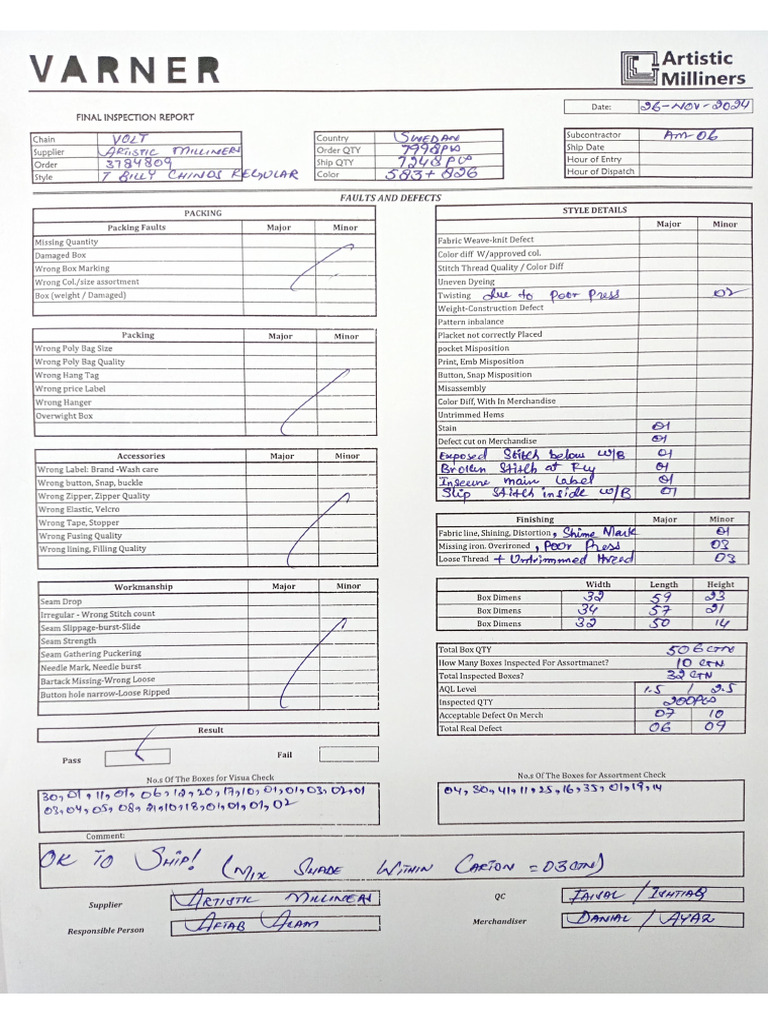 VARNER
Artistic Milliners
FINAL INSPECTION REPORT
Date: 26-NOV-2024
Chain VOLT
Supplier ARTISTIC MILLINERS
Order 3784809
Style T BILLY CHINOS REGULAR
Country SWEDAN
Order QTY 7998 Pcs
Ship QTY 7248 Pcs
Color 583 + 826
Subcontractor AM-06
Ship Date
Hour of Entry
Hour of Dispatch
FAULTS AND DEFECTS
PACKING
Packing Faults Major Minor
Missing Quantity
Damaged Box
Wrong Box Marking
Wrong Col./size assortment
Box (weight / Damaged)
Packing Major Minor
Wrong Poly Bag Size
Wrong Poly Bag Quality
Wrong Hang Tag
Wrong price Label
Wrong Hanger
Overwight Box
Accessories Major Minor
Wrong Label: Brand -Wash care
Wrong button, Snap, buckle
Wrong Zipper, Zipper Quality
Wrong Elastic, Velcro
Wrong Tape, Stopper
Wrong Fusing Quality
Wrong lining, Filling Quality
Workmanship Major Minor
Seam Drop
Irregular - Wrong Stitch count
Seam Slippage-burst-Slide
Seam Strength
Seam Gathering Puckering
Needle Mark, Needle burst
Bartack Missing-Wrong Loose
Button hole narrow-Loose Ripped
Result
Pass Fail
STYLE DETAILS
Major Minor
Fabric Weave-knit Defect
Color diff W/approved col.
Stitch Thread Quality / Color Diff
Uneven Dyeing
Twisting due to Poor Press 02
Weight-Construction Defect
Pattern inbalance
Placket not correctly Placed
pocket Misposition
Print, Emb Misposition
Button, Snap Misposition
Misassembly
Color Diff, With In Merchandise
Untrimmed Hems
Stain 01
Defect cut on Merchandise 01
Exposed Stitch below W/B 01
Broken Stitch at Fly 01
Insecure main Label 01
Slip Stitch inside W/B 01
Finishing Major Minor
Fabric line, Shining, Distortion, Shime Mark 01
Missing iron. Overironed, Poor Press 03
Loose Thread + Untrimmed thread 03
Width Length Height
Box Dimens 32 59 23
Box Dimens 34 57 21
Box Dimens 32 50 14
Total Box QTY 506 CTN
How Many Boxes Inspected For Assortmanet? 10 CTN
Total Inspected Boxes? 32 CTN
AQL Level 1.5 / 2.5
Inspected QTY 200 Pcs
Acceptable Defect On Merch 07 10
Total Real Defect 06 09
No.s Of The Boxes for Visua Check
30, 01, 11, 01, 06, 12, 20, 17, 10, 01, 01, 03, 02, 01
03, 04, 05, 08, 21, 10, 18, 01, 01, 01, 02
No.s Of The Boxes for Assortment Check
04, 30, 41, 11, 25, 16, 35, 01, 19, 14
Comment:
OK TO SHIP! (MIX SHADE WITHIN CARTON = 03 CTN)
Supplier ARTISTIC MILLINERS
Responsible Person AFTAB ALAM
QC FAISAL / ISHTIAQ
Merchandiser DANIAL / AYAZ